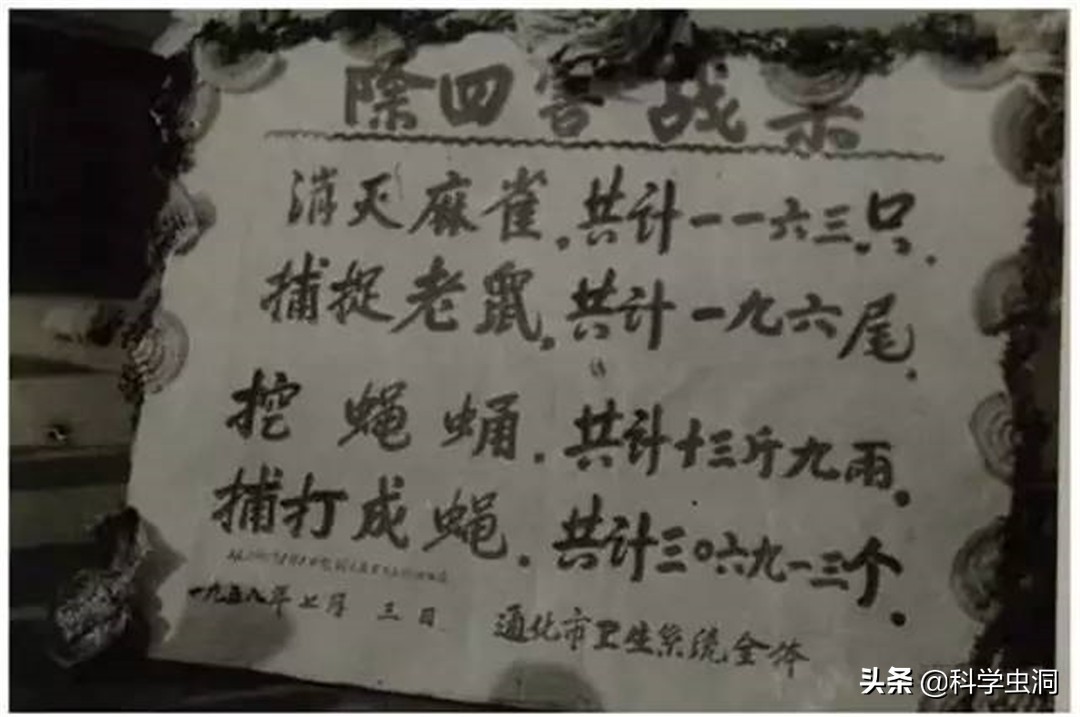 除四害战果
消灭麻雀。共计一一六三只.
捕捉老鼠。共计一九六尾.
挖蝇蛹.共计十三斤九両。
捕打成蝇.共计三〇六九一三个.
一九五八年七月三日
通化市卫生系统全体
头条 @科学虫洞